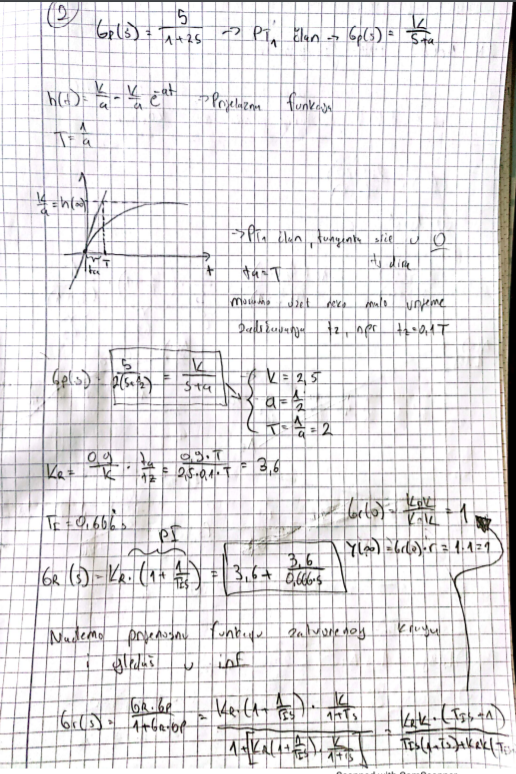 2
Gp(s) = 5/(1+2s) -> PT1 član -> Gp(s) = K/(s+a)
h(t) = K/a - K/a e^-at -> Prijelazna funkcija
T = 1/a
K/a = h(∞)
ta T t
-> PT1 član, tangenta siječe u 0
ta = T
moramo uzet neko malo vrijeme
zadržavanja tz, npr tz = 0,1T
Gp(s) = 5/(2(s+1/2)) = K/(s+a)
K = 2,5
a = 1/2
T = 1/a = 2
KR = 0,9/K · ta/tz = 0,9·T/(2,5·0,1·T) = 3,6
TI = 0,666 s
Gr(0) = KRK/KRK = 1
Y(∞) = Gr(0)·r = 1·1 = 1
PI
GR(s) = KR·(1+1/(TIs)) = 3,6 + 3,6/(0,666·s)
Nađemo prijenosnu funkciju zatvorenog kruga
i gledaš u inf
Gr(s) = GR·Gp/(1+GR·Gp) = KR·(1+1/(TIs))·K/(1+Ts) / (1+[KR(1+1/(TIs))·K/(1+Ts)]) = KRK·(TIs+1)/(TIs(1+Ts)+KRK(TIs